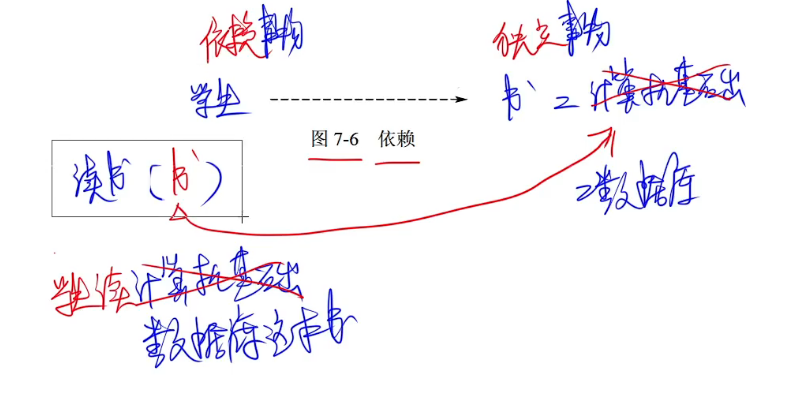 依赖事物 独立事物
学生 书 = 计算机基础
图 7-6 依赖
读书（书）
=数据库
学生读计算机基础
数据库这本书